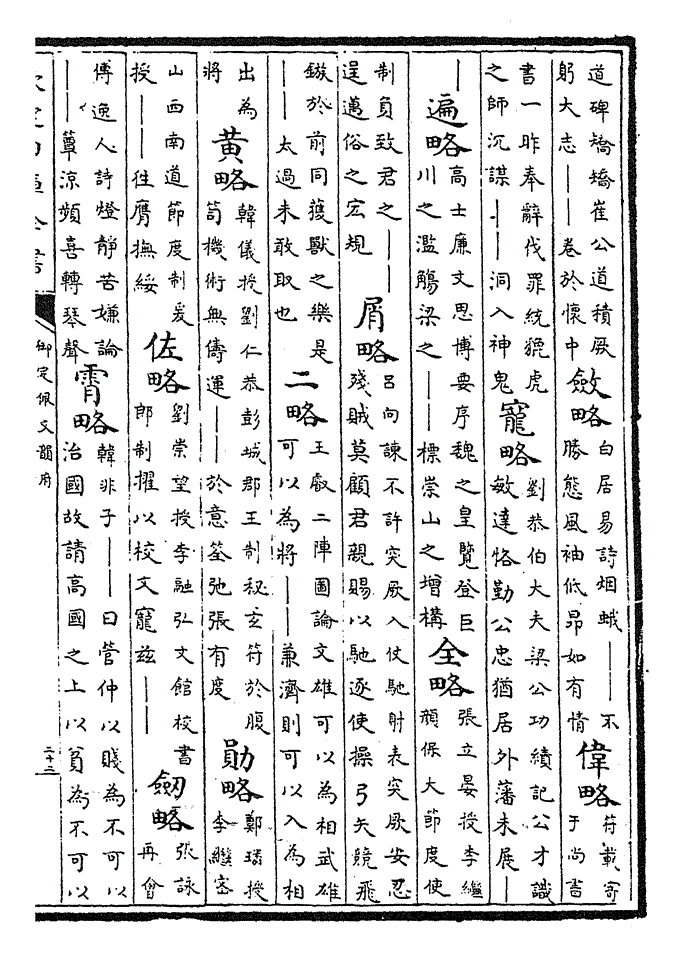 道碑矯矯崔公道積厥
躬大志——卷於懷中
斂略
白居易詩烟蛾——不
勝態風袖低昂如有情
偉略
符載寄
于尚書
書一昨奉辭伐罪統貔虎
之師沉謀——洞入神鬼
寵略
劉恭伯大夫梁公功績記公才識
敏達恪勤公忠猶居外藩未展—
—
遍略
高士廉文思博要序魏之皇覽登巨
川之濫觴梁之——標崇山之增構
全略
張立晏授李繼
顏保大節度使
制負致君之——
逞邁俗之宏規
屑略
呂向諫不許突厥入仗馳射表突厥安忍
殘賊莫顧君親賜以馳逐使操弓矢競飛
鏃於前同獲獸之樂是
——太過未敢取也
二略
王叡二陣圖論文雄可以為相武雄
可以為將——兼濟則可以入為相
出為
將
黄略
韓儀授劉仁恭彭城郡王制秘玄符於腹
笥機術無儔運——於意筌弛張有度
勛略
鄭璘授
李繼宻
山西南道節度制爰
授——往膺撫綏
佐略
劉崇望授李融弘文館校書
郎制擢以校文寵兹——
劒略
張詠
再會
傅逸人詩燈靜苦嫌論
——簟涼頻喜轉琴聲
霄略
韓非子——曰管仲以賤為不可以
治國故請高國之上以貧為不可以
欽定四庫全書
御定佩文韻府
二十二